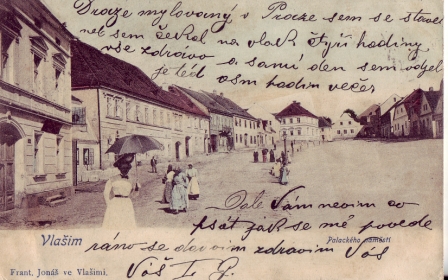 Draze mylovaný, v Praze sem se stavel
net sem čekal na vlak čtyři hodiny
vše zdrávo a samú den sem odjel
je teď osm hodin večer
Dále Vám nevim co
psát jak se mé povede
ráno se dovim zdravim Vás
Váš I. G.
Vlašim
Palackého náměstí
Frant. Jonáš ve Vlašimi.